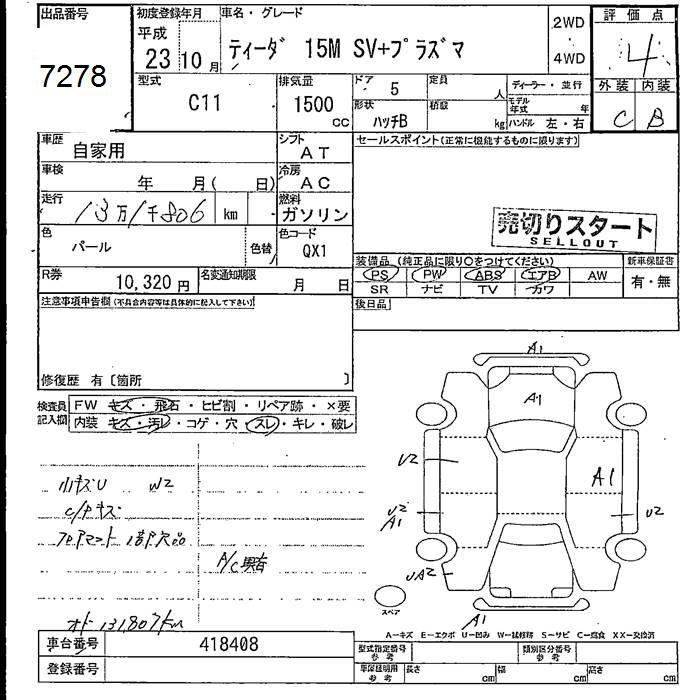 出品番号
7278
初度登録年月
平成
23 10月
車名・グレード
ティーダ 15M SV+プラズマ
2WD
4WD
評価点
4
外装 内装
C B
型式
C11
排気量
1500
CC
ドア
5
定員
人
形状
ハッチB
積載
kg
ディーラー・並行
モデル年式 年
ハンドル 左・右
車歴
自家用
シフト
AT
セールスポイント(正常に機能するものに限ります)
車検
年 月( 日)
冷房
AC
走行
13万1千806 km
燃料
ガソリン
売切りスタート
SELLOUT
色
パール
色替
色コード
QX1
装備品(純正品に限り〇をつけてください)
新車保証書
PS PW ABS エアB AW
有・無
SR ナビ TV カワ
R券
10,320円
名変通知期限
月 日
後日品
注意事項申告欄(不具合内容等は具体的に記入して下さい)
修復歴 有〔箇所 〕
検査員記入欄
FW キズ・飛石・ヒビ割・リペア跡・×要
内装 キズ・汚レ・コゲ・穴・スレ・キレ・破レ
小キズU W2
C/Pキズ
フロアマット 1部欠品
A/C臭有
オド 131,807km
A1
A1
U2
A1
U2
A1
U2
UA2
A1
スペア
A-キズ E-エクボ U-凹み W-補修跡 S-サビ C-腐食 XX-交換済
車台番号
418408
登録番号
型式指定番号
参考
類別区分番号
参考
車庫証明用
参考
長さ
cm
幅
cm
高さ
cm